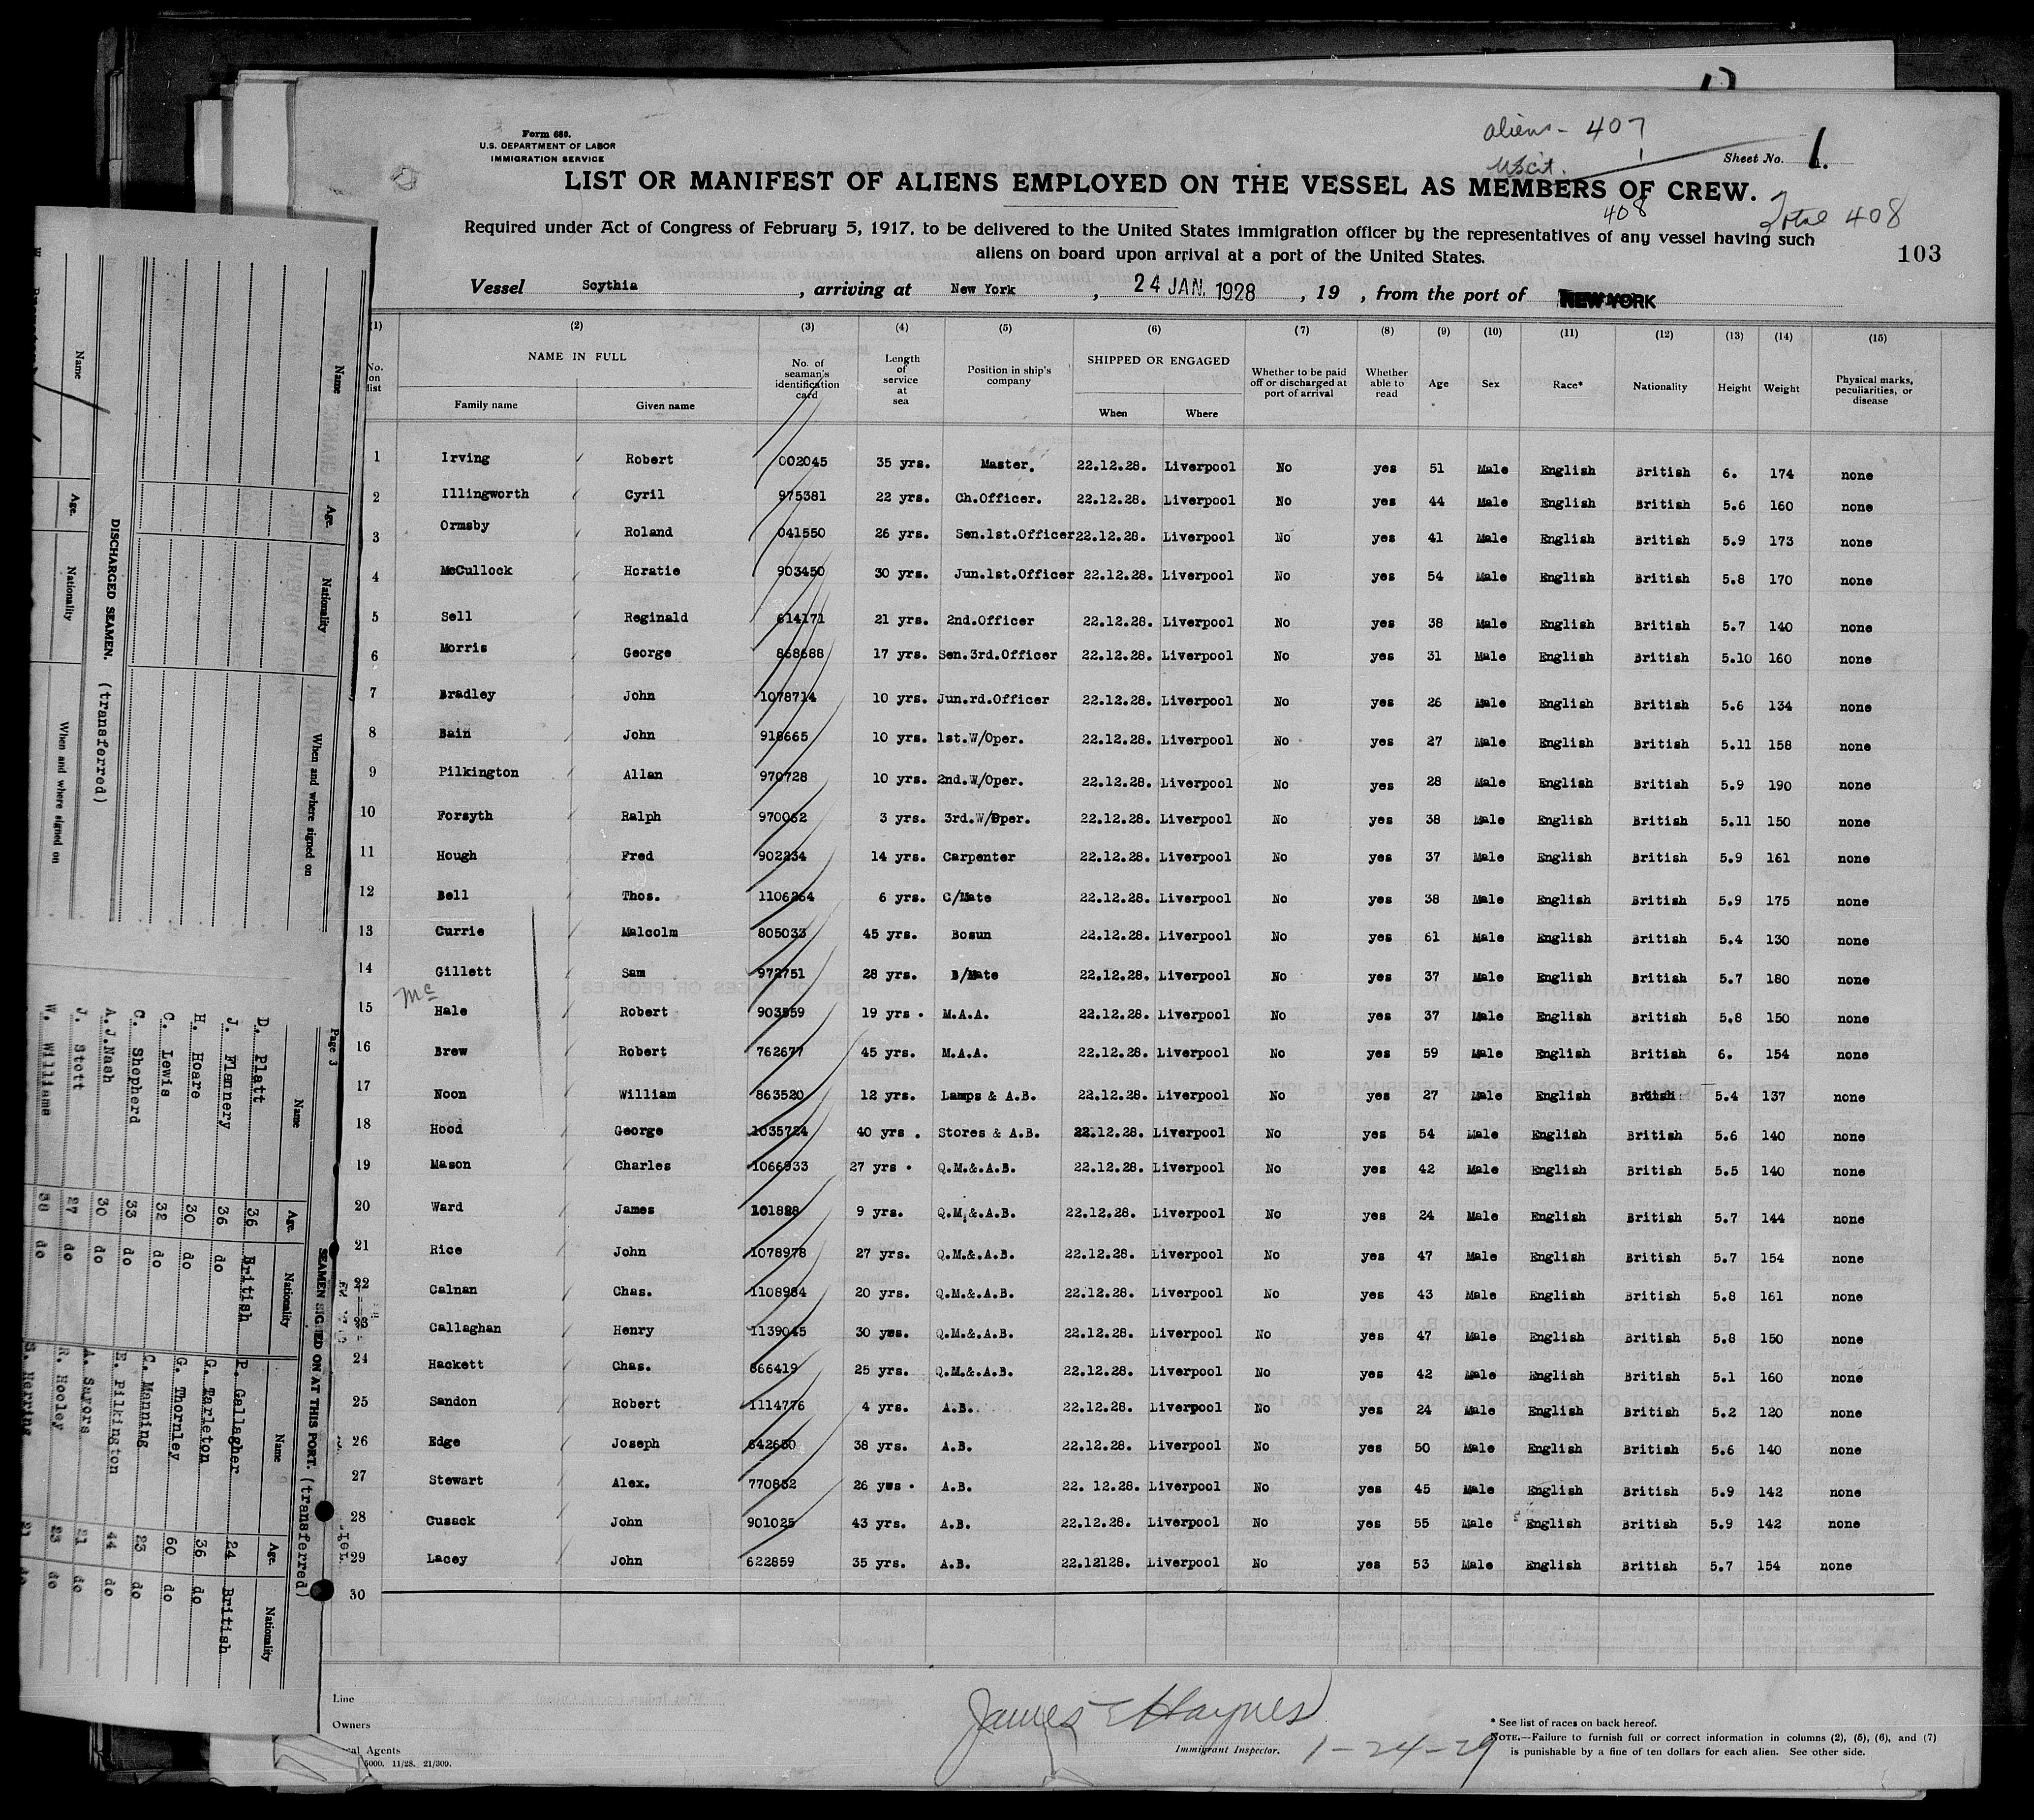 Form 680.
U.S. DEPARTMENT OF LABOR
IMMIGRATION SERVICE
aliens - 407
UScit. 1
408
Total 408
Sheet No. 1.
LIST OR MANIFEST OF ALIENS EMPLOYED ON THE VESSEL AS MEMBERS OF CREW.
Required under Act of Congress of February 5, 1917, to be delivered to the United States immigration officer by the representatives of any vessel having such
aliens on board upon arrival at a port of the United States.
103
Vessel Scythia, arriving at New York, 24 JAN. 1928, 19 , from the port of NEW YORK
(1) (2) (3) (4) (5) (6) (7) (8) (9) (10) (11) (12) (13) (14) (15)
No. on list NAME IN FULL Family name Given name No. of seaman's identification card Length of service at sea Position in ship's company SHIPPED OR ENGAGED When Where Whether to be paid off or discharged at port of arrival Whether able to read Age Sex Race* Nationality Height Weight Physical marks, peculiarities, or disease
1 Irving Robert 002045 35 yrs. Master. 22.12.28. Liverpool No yes 51 Male English British 6. 174 none
2 Illingworth Cyril 975381 22 yrs. Ch.Officer. 22.12.28. Liverpool No yes 44 Male English British 5.6 160 none
3 Ormsby Roland 041550 26 yrs. Sen.1st.Officer 22.12.28. Liverpool No yes 41 Male English British 5.9 173 none
4 McCullock Horatie 903450 30 yrs. Jun.1st.Officer 22.12.28. Liverpool No yes 54 Male English British 5.8 170 none
5 Sell Reginald 614171 21 yrs. 2nd.Officer 22.12.28. Liverpool No yes 38 Male English British 5.7 140 none
6 Morris George 868688 17 yrs. Sen.3rd.Officer 22.12.28. Liverpool No yes 31 Male English British 5.10 160 none
7 Bradley John 1078714 10 yrs. Jun.rd.Officer 22.12.28. Liverpool No yes 26 Male English British 5.6 134 none
8 Bain John 918665 10 yrs. 1st.W/Oper. 22.12.28. Liverpool No yes 27 Male English British 5.11 158 none
9 Pilkington Allan 970728 10 yrs. 2nd.W/Oper. 22.12.28. Liverpool No yes 28 Male English British 5.9 190 none
10 Forsyth Ralph 970062 3 yrs. 3rd.W/Oper. 22.12.28. Liverpool No yes 38 Male English British 5.11 150 none
11 Hough Fred 902234 14 yrs. Carpenter 22.12.28. Liverpool No yes 37 Male English British 5.9 161 none
12 Bell Thos. 1106264 6 yrs. C/Mate 22.12.28. Liverpool No yes 38 Male English British 5.9 175 none
13 Currie Malcolm 805033 45 yrs. Bosun 22.12.28. Liverpool No yes 61 Male English British 5.4 130 none
14 Gillett Sam 972751 28 yrs. B/Mate 22.12.28. Liverpool No yes 37 Male English British 5.7 180 none
15 Mc Hale Robert 903559 19 yrs. M.A.A. 22.12.28. Liverpool No yes 37 Male English British 5.8 150 none
16 Brew Robert 762677 45 yrs. M.A.A. 22.12.28. Liverpool No yes 59 Male English British 6. 154 none
17 Noon William 863520 12 yrs. Lamps & A.B. 22.12.28. Liverpool No yes 27 Male English British 5.4 137 none
18 Hood George 1035724 40 yrs. Stores & A.B. 22.12.28. Liverpool No yes 54 Male English British 5.6 140 none
19 Mason Charles 1066933 27 yrs. Q.M.&.A.B. 22.12.28. Liverpool No yes 42 Male English British 5.5 140 none
20 Ward James 101828 9 yrs. Q.M.&.A.B. 22.12.28. Liverpool No yes 24 Male English British 5.7 144 none
21 Rice John 1078978 27 yrs. Q.M.&.A.B. 22.12.28. Liverpool No yes 47 Male English British 5.7 154 none
22 Calnan Chas. 1108984 20 yrs. Q.M.&.A.B. 22.12.28. Liverpool No yes 43 Male English British 5.8 161 none
23 Callaghan Henry 1139045 30 yes. Q.M.&.A.B. 22.12.28. Liverpool No yes 47 Male English British 5.8 150 none
24 Hackett Chas. 866419 25 yrs. Q.M.&.A.B. 22.12.28. Liverpool No yes 42 Male English British 5.1 160 none
25 Sandon Robert 1114776 4 yrs. A.B. 22.12.28. Liverpool No yes 24 Male English British 5.2 120 none
26 Edge Joseph 642630 38 yrs. A.B. 22.12.28. Liverpool No yes 50 Male English British 5.6 140 none
27 Stewart Alex. 770852 26 yes. A.B. 22. 12.28. Liverpool No yes 45 Male English British 5.9 142 none
28 Cusack John 901025 43 yrs. A.B. 22.12.28. Liverpool No yes 55 Male English British 5.9 142 none
29 Lacey John 622859 35 yrs. A.B. 22.12128. Liverpool No yes 53 Male English British 5.7 154 none
30
Line
Owners
Agents
5000. 11/28. 21/309.
James E Haynes
Immigrant Inspector. 1-24-29
* See list of races on back hereof.
NOTE.—Failure to furnish full or correct information in columns (2), (5), (6), and (7)
is punishable by a fine of ten dollars for each alien. See other side.
Name Age. Nationality When and where signed on
DISCHARGED SEAMEN. (transferred)
Name Age. Nationality When and where signed on
Page 3
SEAMEN SIGNED ON AT THIS PORT. (transferred)
Name Age. Nationality Name Age. Nationality
D. Platt 36 British P. Gallagher 24 British
J. Flannery 36 do G. Tarleton 36 do
H. Hoare 30 do G. Thornley 60 do
C. Lewis 32 do C. Manning 23 do
C. Shepherd 33 do E. Pilkington 44 do
A.J.Nash 30 do A. Sayors 21 do
J. Stott 27 do R. Hooley 23 do
W. Williams 38 do S. Herring 21 do